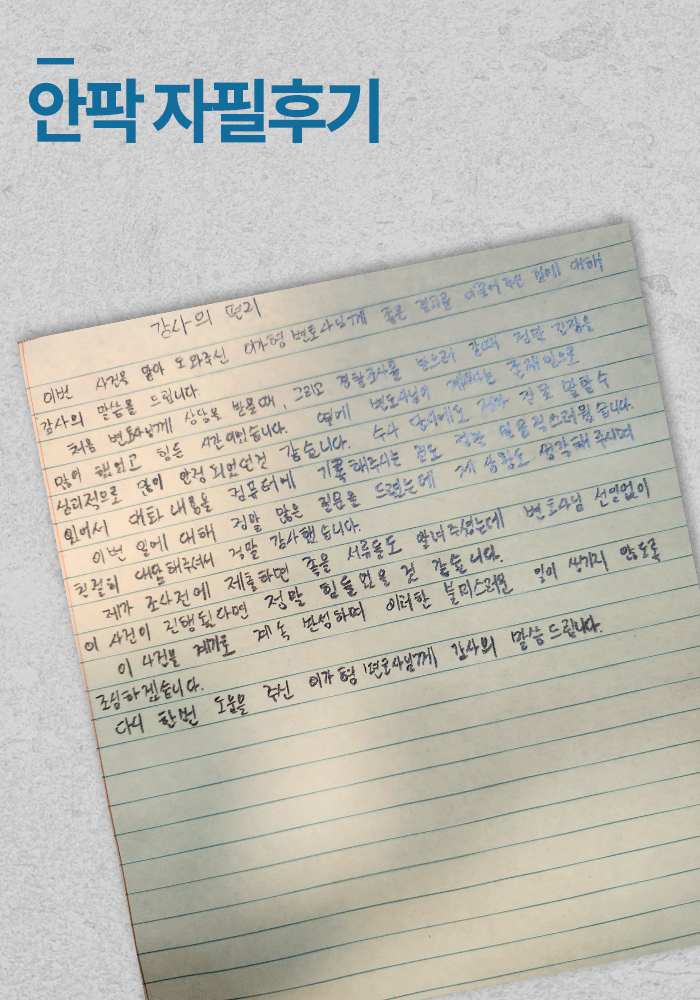 안팍 자필후기
감사의 편지
이번 사건을 맡아 도와주신 이가형 변호사님께 좋은 결과를 이끌어주신 점에 대해
감사의 말씀을 드립니다.
처음 변호사님께 상담을 받을때, 그리고 경찰조사를 받으러 갈때 정말 긴장을
많이 했었고 힘든 시간이었습니다. 옆에 변호사님이 계셔서 존재만으로
심리적으로 많이 안정되었던것 같습니다. 수사 당시에도 제가 잘못 말할 수
있어서 대화 내용을 컴퓨터에 기록해주시는 점도 정말 믿음직스러웠습니다.
이번 일에 대해 정말 많은 질문을 드렸는데 제 상황도 생각해주시며
친절히 대답해주셔서 정말 감사했습니다.
제가 조사전에 제출하면 좋을 서류들도 알려주셨는데 변호사님 선임없이
이 사건이 진행된다면 정말 힘들었을 것 같습니다.
이 사건을 계기로 계속 반성하며 이러한 불미스러운 일이 생기지 않도록
조심하겠습니다.
다시 한번 도움을 주신 이가형 변호사님께 감사의 말씀드립니다.